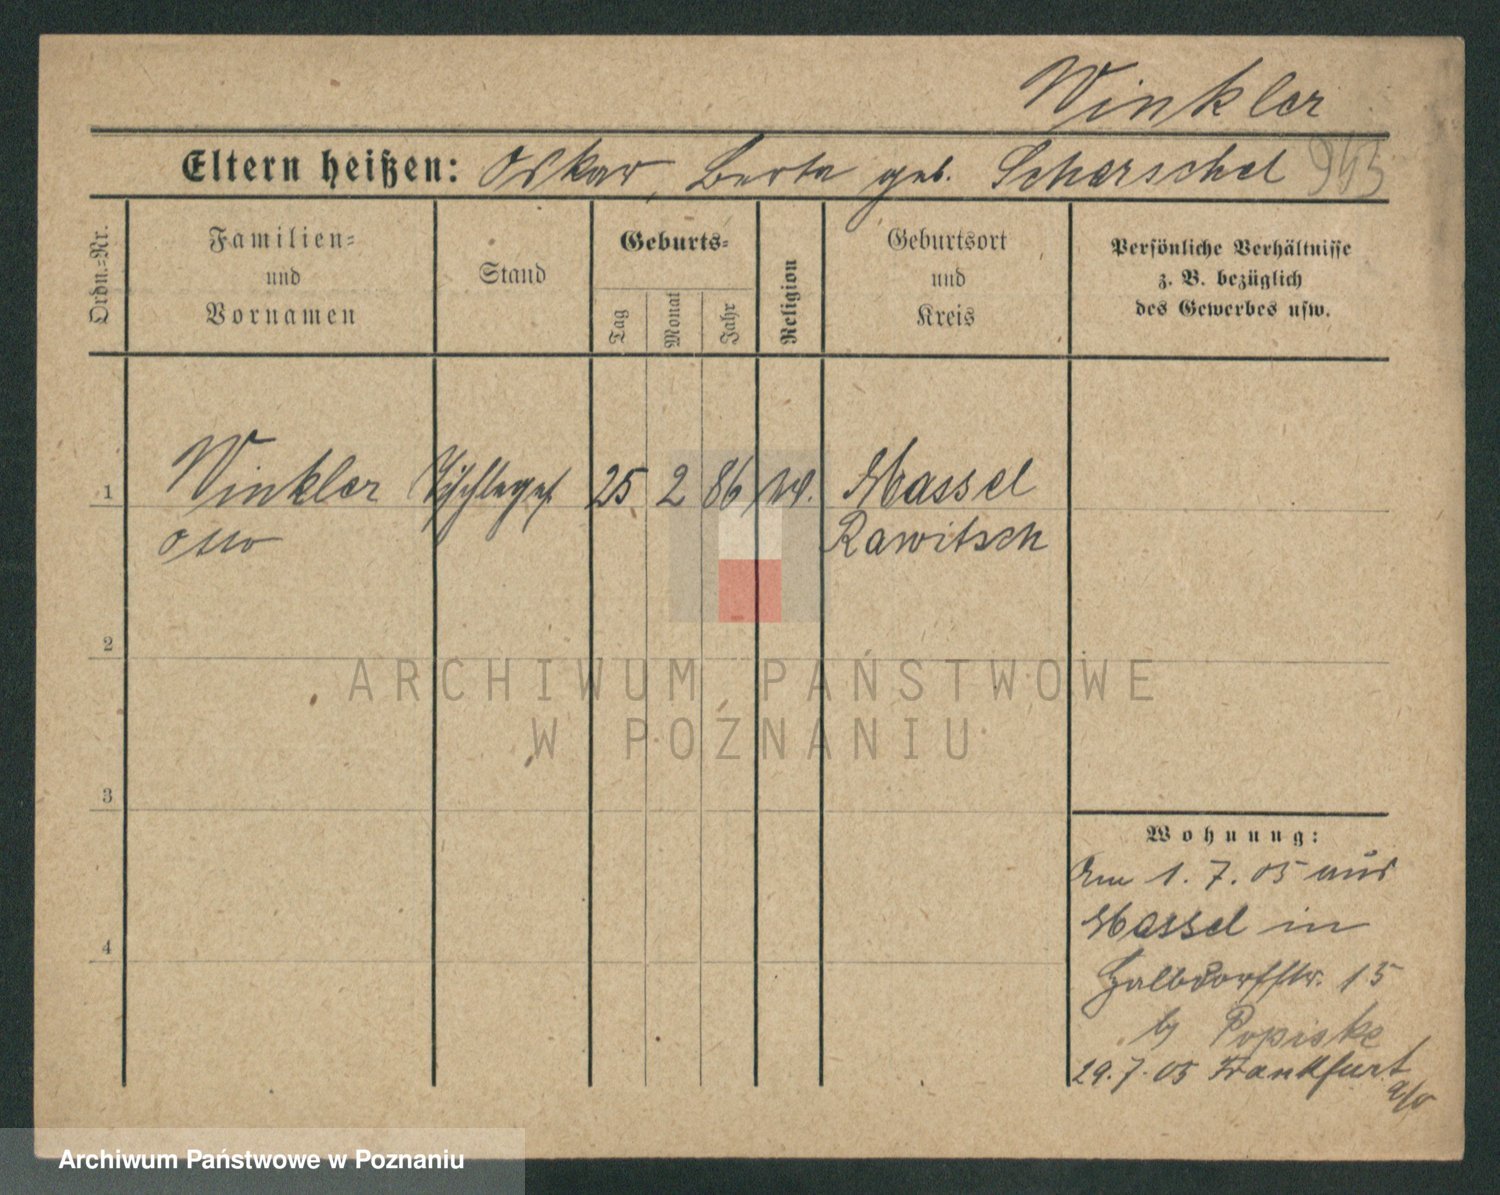 Winkler
Eltern heißen: Oskar, Berta geb. Scherschel 943
Ordn.-Nr.
Familien-
und
Vornamen
Stand
Geburts-
Tag
Monat
Jahr
Religion
Geburtsort
und
Kreis
Persönliche Verhältnisse
z. B. bezüglich
des Gewerbes usw.
1 Winkler Tischlerges. 25 2 86 Massel
Otto Rawitsch
2
3
4
ARCHIWUM PAŃSTWOWE
W POZNANIU
Wohnung:
Am 1. 7. 05 aus
Massel in
Halbdorfstr. 15
by Popiske
29. 7. 05 Frankfurt
a/o
Archiwum Państwowe w Poznaniu